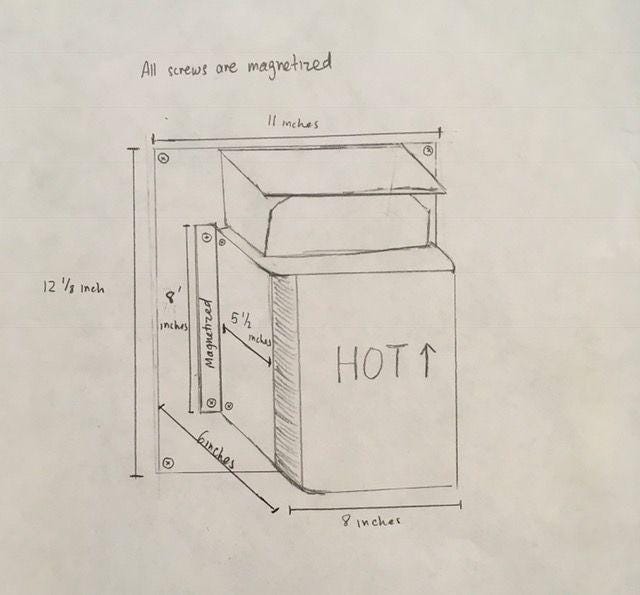 All screws are magnetized
11 inches
12 1/8 inch
8'
inches
Magnetized
5 1/2
inches
HOT ↑
6 inches
8 inches